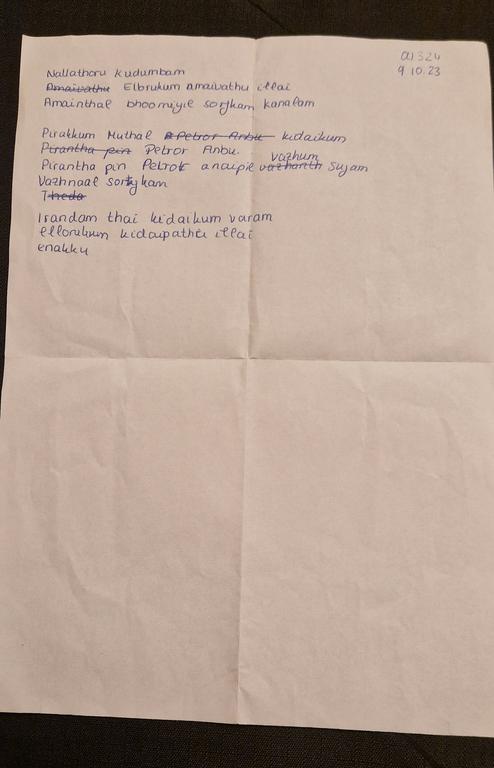 a1324
9.10.23
Nallathoru kudumbam
Amaivathu Elbrukum amaivathu illai
Amainthal bhoomiyil sorgkam kanalam
Piratkum Muthal a Petror Anbu kidaikum
Pirantha pin Petror Anbu.
vazhum
Pirantha pin Petrot anaipil vazhanth Sugam
Vazhnaal sorgkam
Theda
Irandam thai kidaikum varam
ellorukum kidaipathu illai
enakku